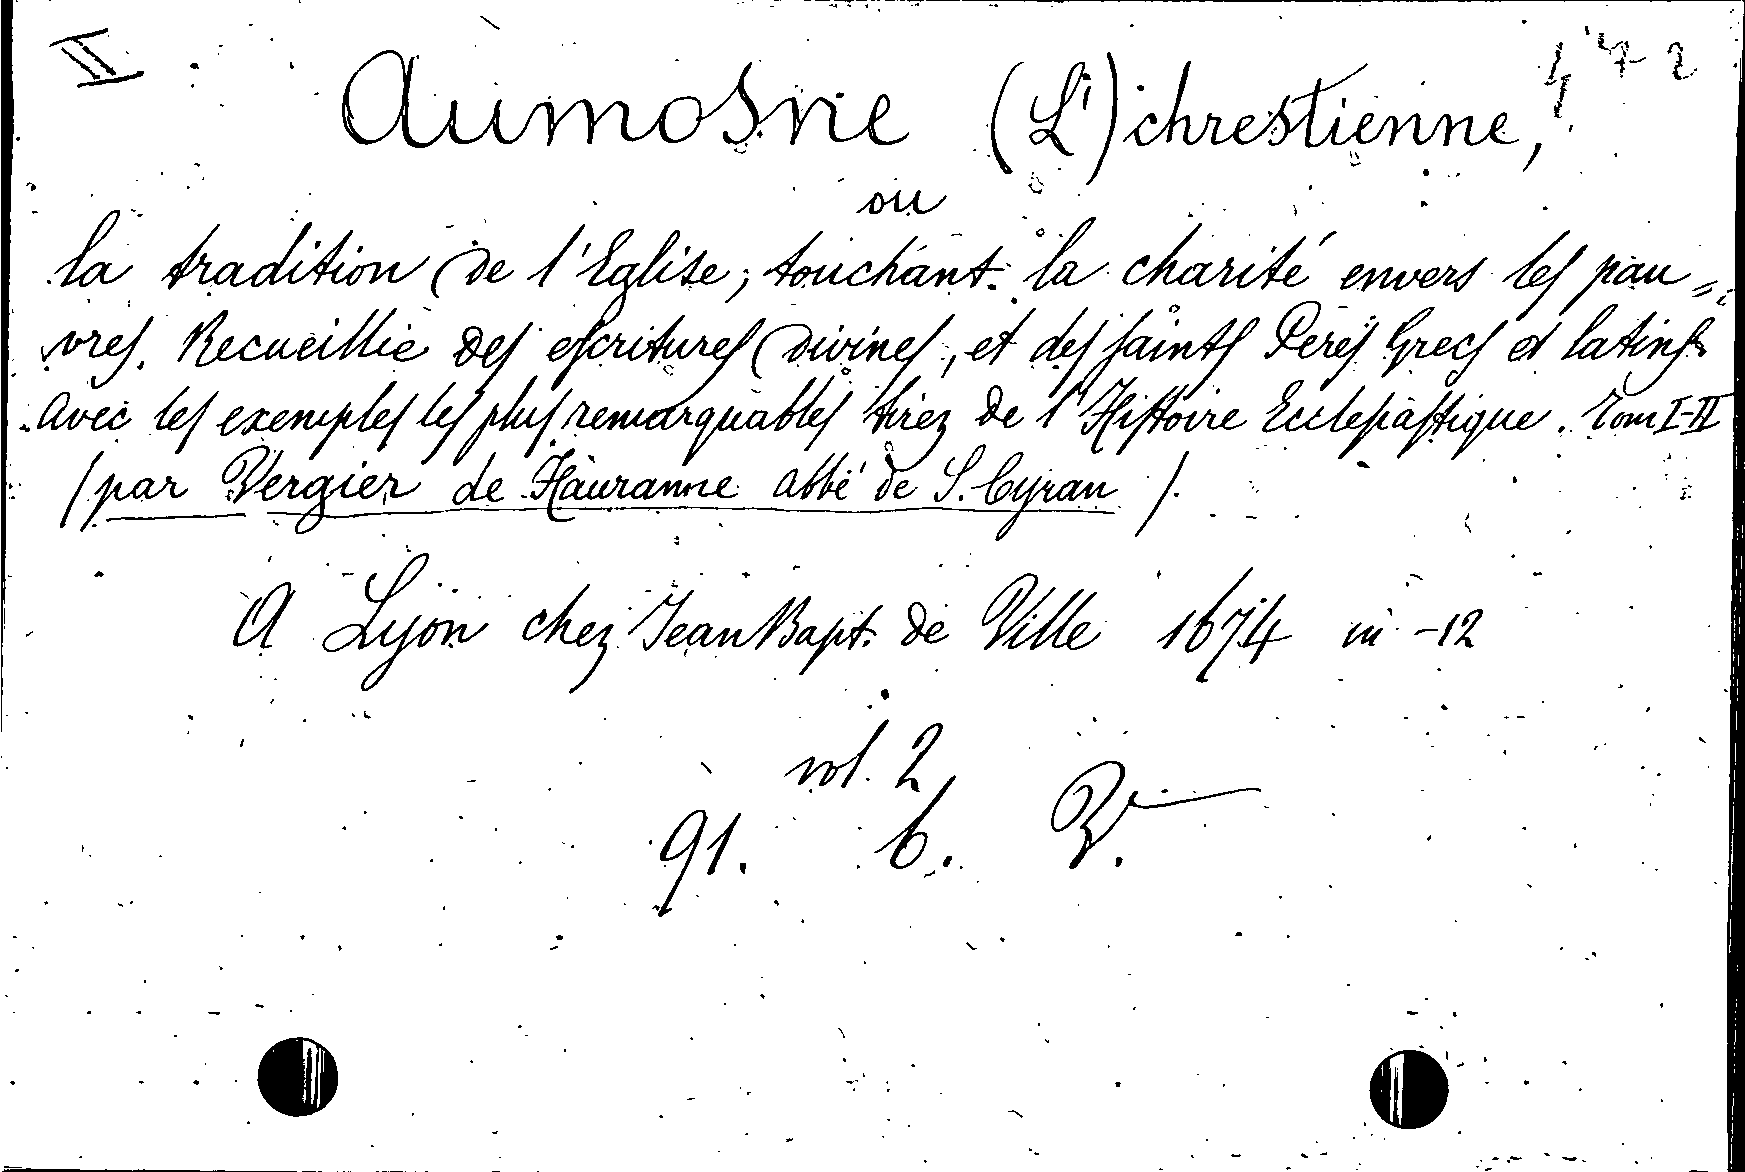 II
472
Aumosne (L') chrestienne,
ou
la tradition de l'Eglise, touchant la charité envers les pau=
vres. Recueillie des escritures divines, et des saints Peres Grecs et latins
avec les exemples les plus remarquables tirez de l'Histoire Ecclesiastique. Tom I-II
/par Vergier de Hauranne abbé de S. Cyran/.
A Lyon chez Jean Bapt. de Ville 1674 in -12
vol. 2
91. b.